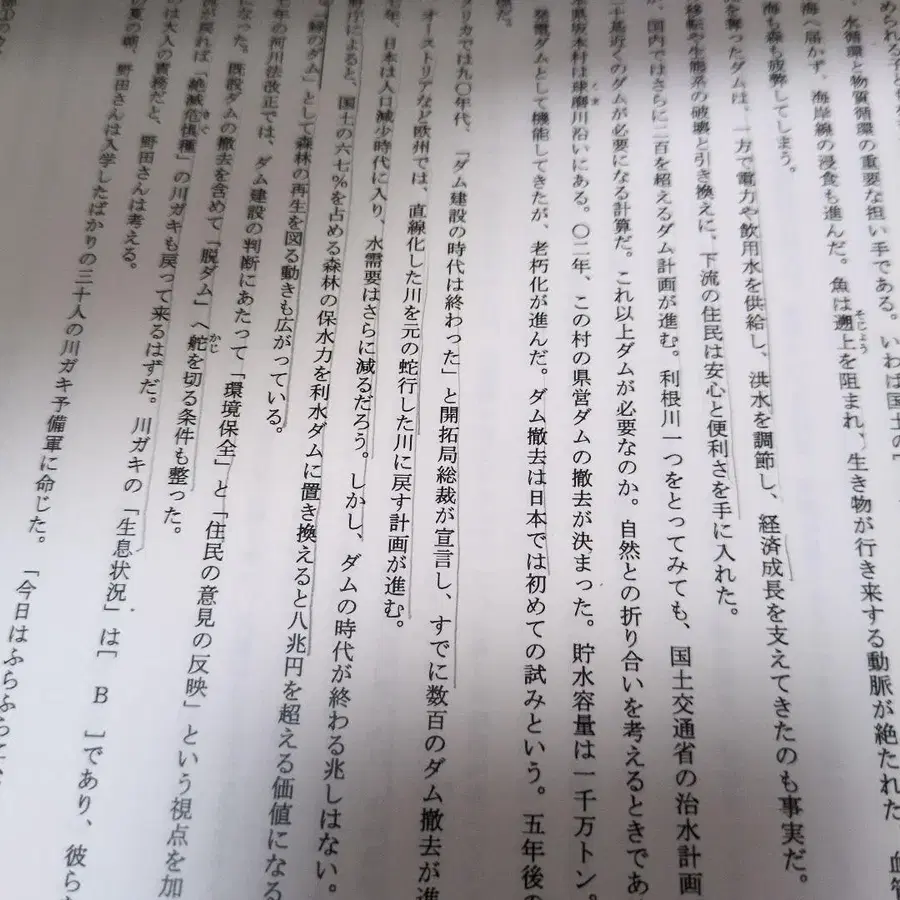 水循環と物質循環の重要な担い手である。いわば国土の「
海へ届かず、海岸線の浸食も進んだ。魚は遡上を阻まれ、生き物が行き来する動脈が絶たれた
そじょう
海も森も疲弊してしまう。
を奪ったダムは、一方で電力や飲用水を供給し、洪水を調節し、経済成長を支えてきたのも事実だ。
移転や生態系の破壊と引き換えに、下流の住民は安心と便利さを手に入れた。
国内ではさらに二百を超えるダム計画が進む。利根川一つをとってみても、国土交通省の治水計画
十基近くのダムが必要になる計算だ。これ以上ダムが必要なのか。自然との折り合いを考えるときであ
県坂本村は球磨川沿いにある。〇二年、この村の県営ダムの撤去が決まった。貯水容量は一千万トン。
くま
発電ダムとして機能してきたが、老朽化が進んだ。ダム撤去は日本では初めての試みという。五年後の
メリカでは九〇年代、「ダム建設の時代は終わった」と開拓局総裁が宣言し、すでに数百のダム撤去が進
オーストリアなど欧州では、直線化した川を元の蛇行した川に戻す計画が進む。
年、日本は人口減少時代に入り、水需要はさらに減るだろう。しかし、ダムの時代が終わる兆しはない。
によると、国土の六七％を占める森林の保水力を利水ダムに置き換えると八兆円を超える価値になる
のダム」として森林の再生を図る動きも広がっている。
年の河川法改正では、ダム建設の判断にあたって「環境保全」と「住民の意見の反映」という視点を加
になった。既設ダムの撤去を含めて「脱ダム」へ舵を切る条件も整った。
かじ
戻れば「絶滅危惧種」の川ガキも戻って来るはずだ。川ガキの「生息状況」は［　B　］であり、彼ら
きぐ
は大人の責務だと、野田さんは考える。
の朝、野田さんは入学したばかりの三十人の川ガキ予備軍に命じた。「今日はふらふらて